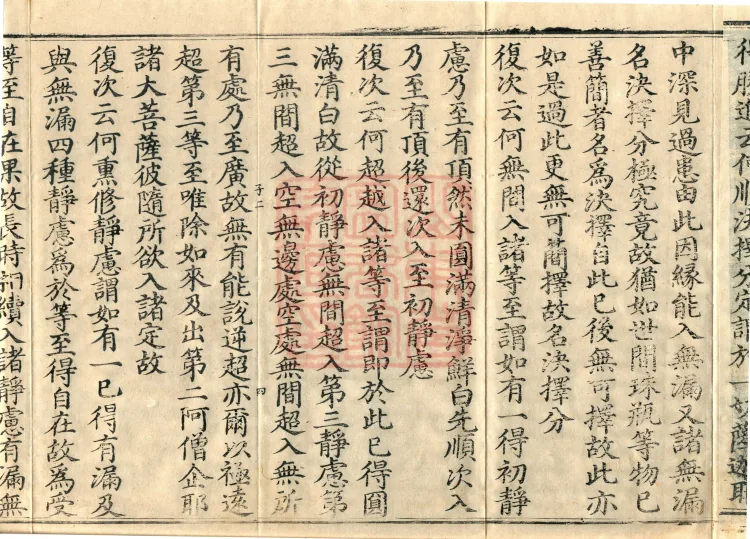 中深見過患由此因緣能入無漏又諸無漏
名決擇分極究竟故猶如世間珠瓶等物已
善簡者名為決擇自此已後無可擇故此亦
如是過此更無可簡擇故名決擇分
復次云何無間入諸等至謂如有一得初靜
慮乃至有頂然未圓滿清淨鮮白先順次入
乃至有頂後還次入至初靜慮
復次云何超越入諸等至謂即於此已得圓
滿清白故從初靜慮無間超入第三靜慮第
三無間超入空無邊處空處無間超入無所
子二 四
有處乃至廣故無有能說逆超亦爾以極遠
超第三等至唯除如來及出第二阿僧企耶
諸大菩薩彼隨所欲入諸定故
復次云何熏修靜慮謂如有一已得有漏及
與無漏四種靜慮為於等至得自在故為受
等至自在果故長時相續入諸靜慮有漏無